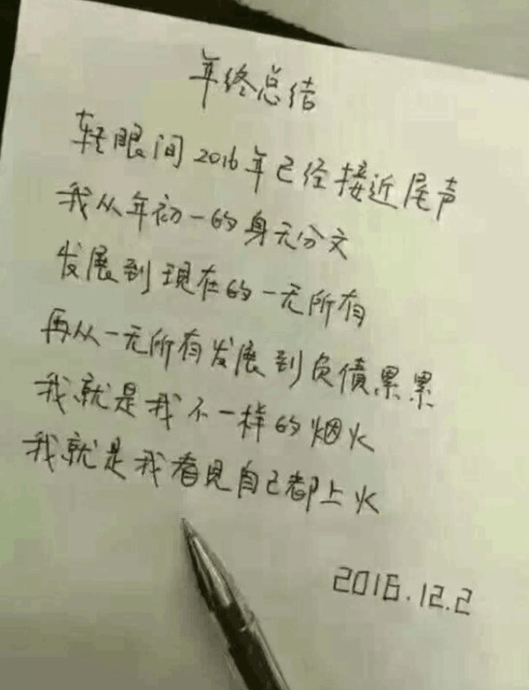 年终总结
转眼间2016年已经接近尾声
我从年初一的身无分文
发展到现在的一无所有
再从一无所有发展到负债累累
我就是我不一样的烟火
我就是我看见自己都上火
2016.12.2